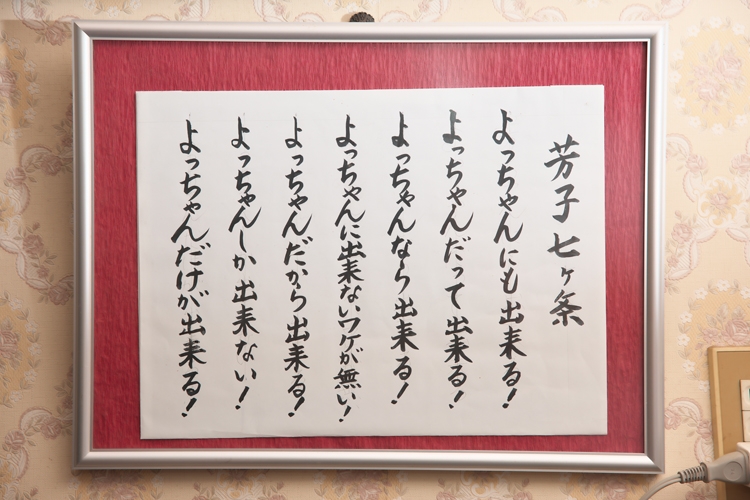 芳子七ヶ条
よっちゃんにも出来る！
よっちゃんだって出来る！
よっちゃんなら出来る！
よっちゃんに出来ないワケが無い！
よっちゃんだから出来る！
よっちゃんしか出来ない！
よっちゃんだけが出来る！